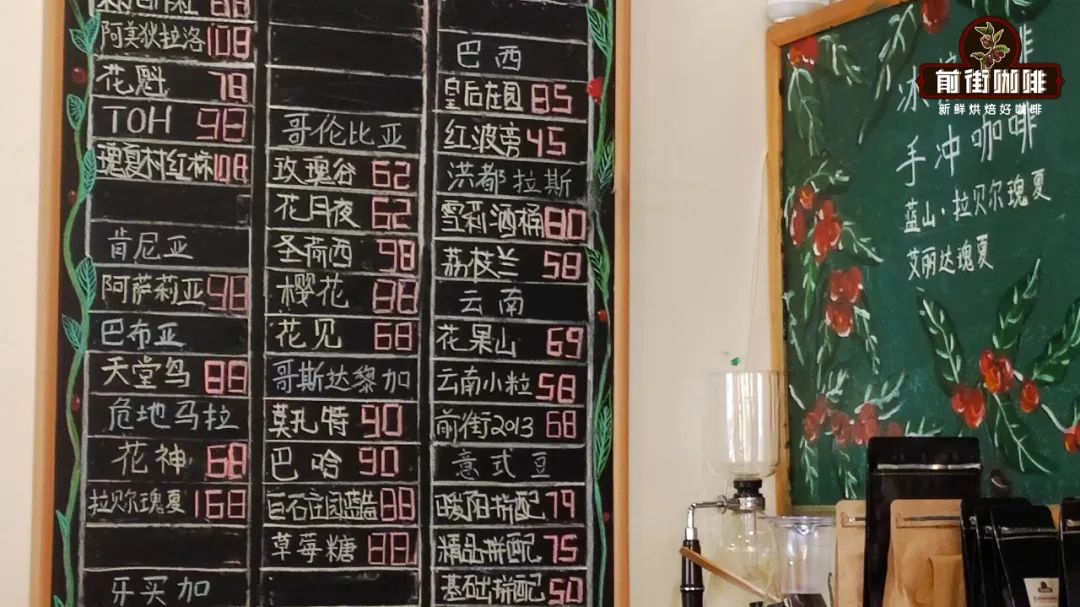 阿美狄拉洛 108
花魁 78
TOH 98
瑰夏村红标 108
肯尼亚
阿萨莉亚 98
巴布亚
天堂鸟 88
危地马拉
花神 68
拉贝尔瑰夏 168
牙买加
哥伦比亚
玫瑰谷 62
花月夜 62
圣荷西 98
樱花 88
花见 68
哥斯达黎加
莫扎特 90
巴哈 90
白石庄园蓝 88
草莓糖 88
巴西
皇后庄园 85
红波旁 45
洪都拉斯
雪莉酒桶 80
荔枝兰 58
云南
花果山 69
云南小粒 58
前街2013 68
意式豆
暖阳拼配 79
精品拼配 75
基础拼配 50
手冲咖啡
蓝山·拉贝尔瑰夏
艾丽达瑰夏
前街咖啡
新鲜烘焙好咖啡